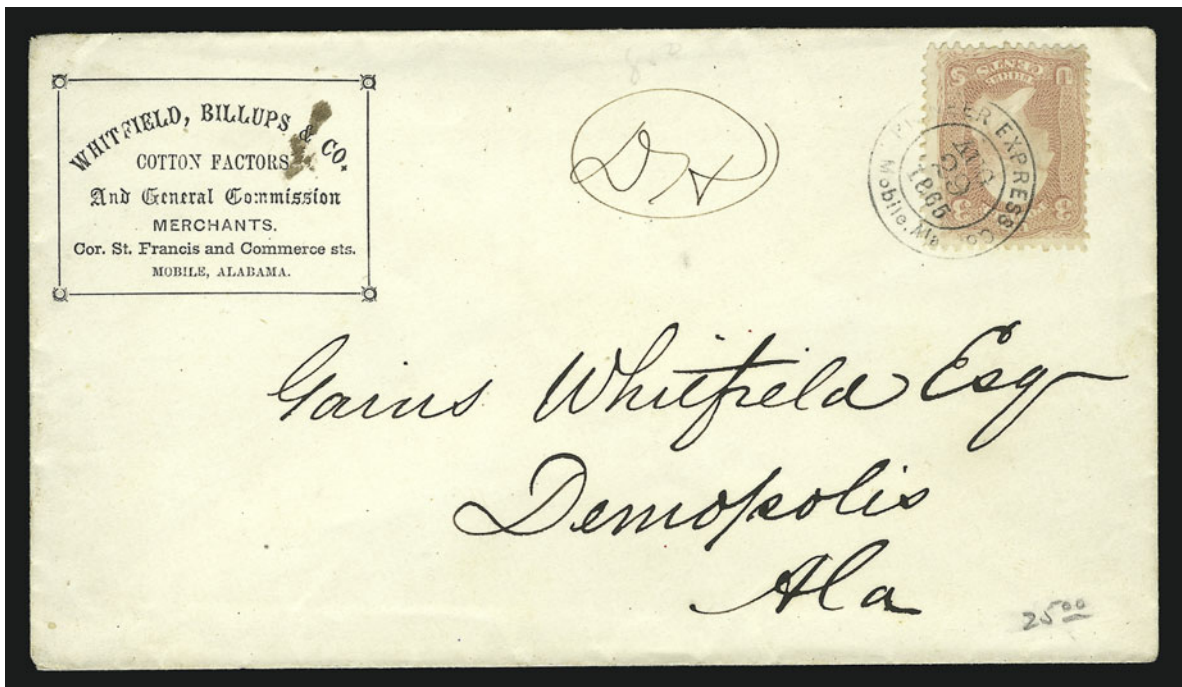 WHITFIELD, BILLUPS & CO.
COTTON FACTORS
And General Commission
MERCHANTS.
Cor. St. Francis and Commerce sts.
MOBILE, ALABAMA.
DH
U S
THREE
CENTS
3 3
EXPRESS Co.
AUG
29
1865
Mobile, Ala
Gains Whitfield Esq
Demopolis
Ala
25 00